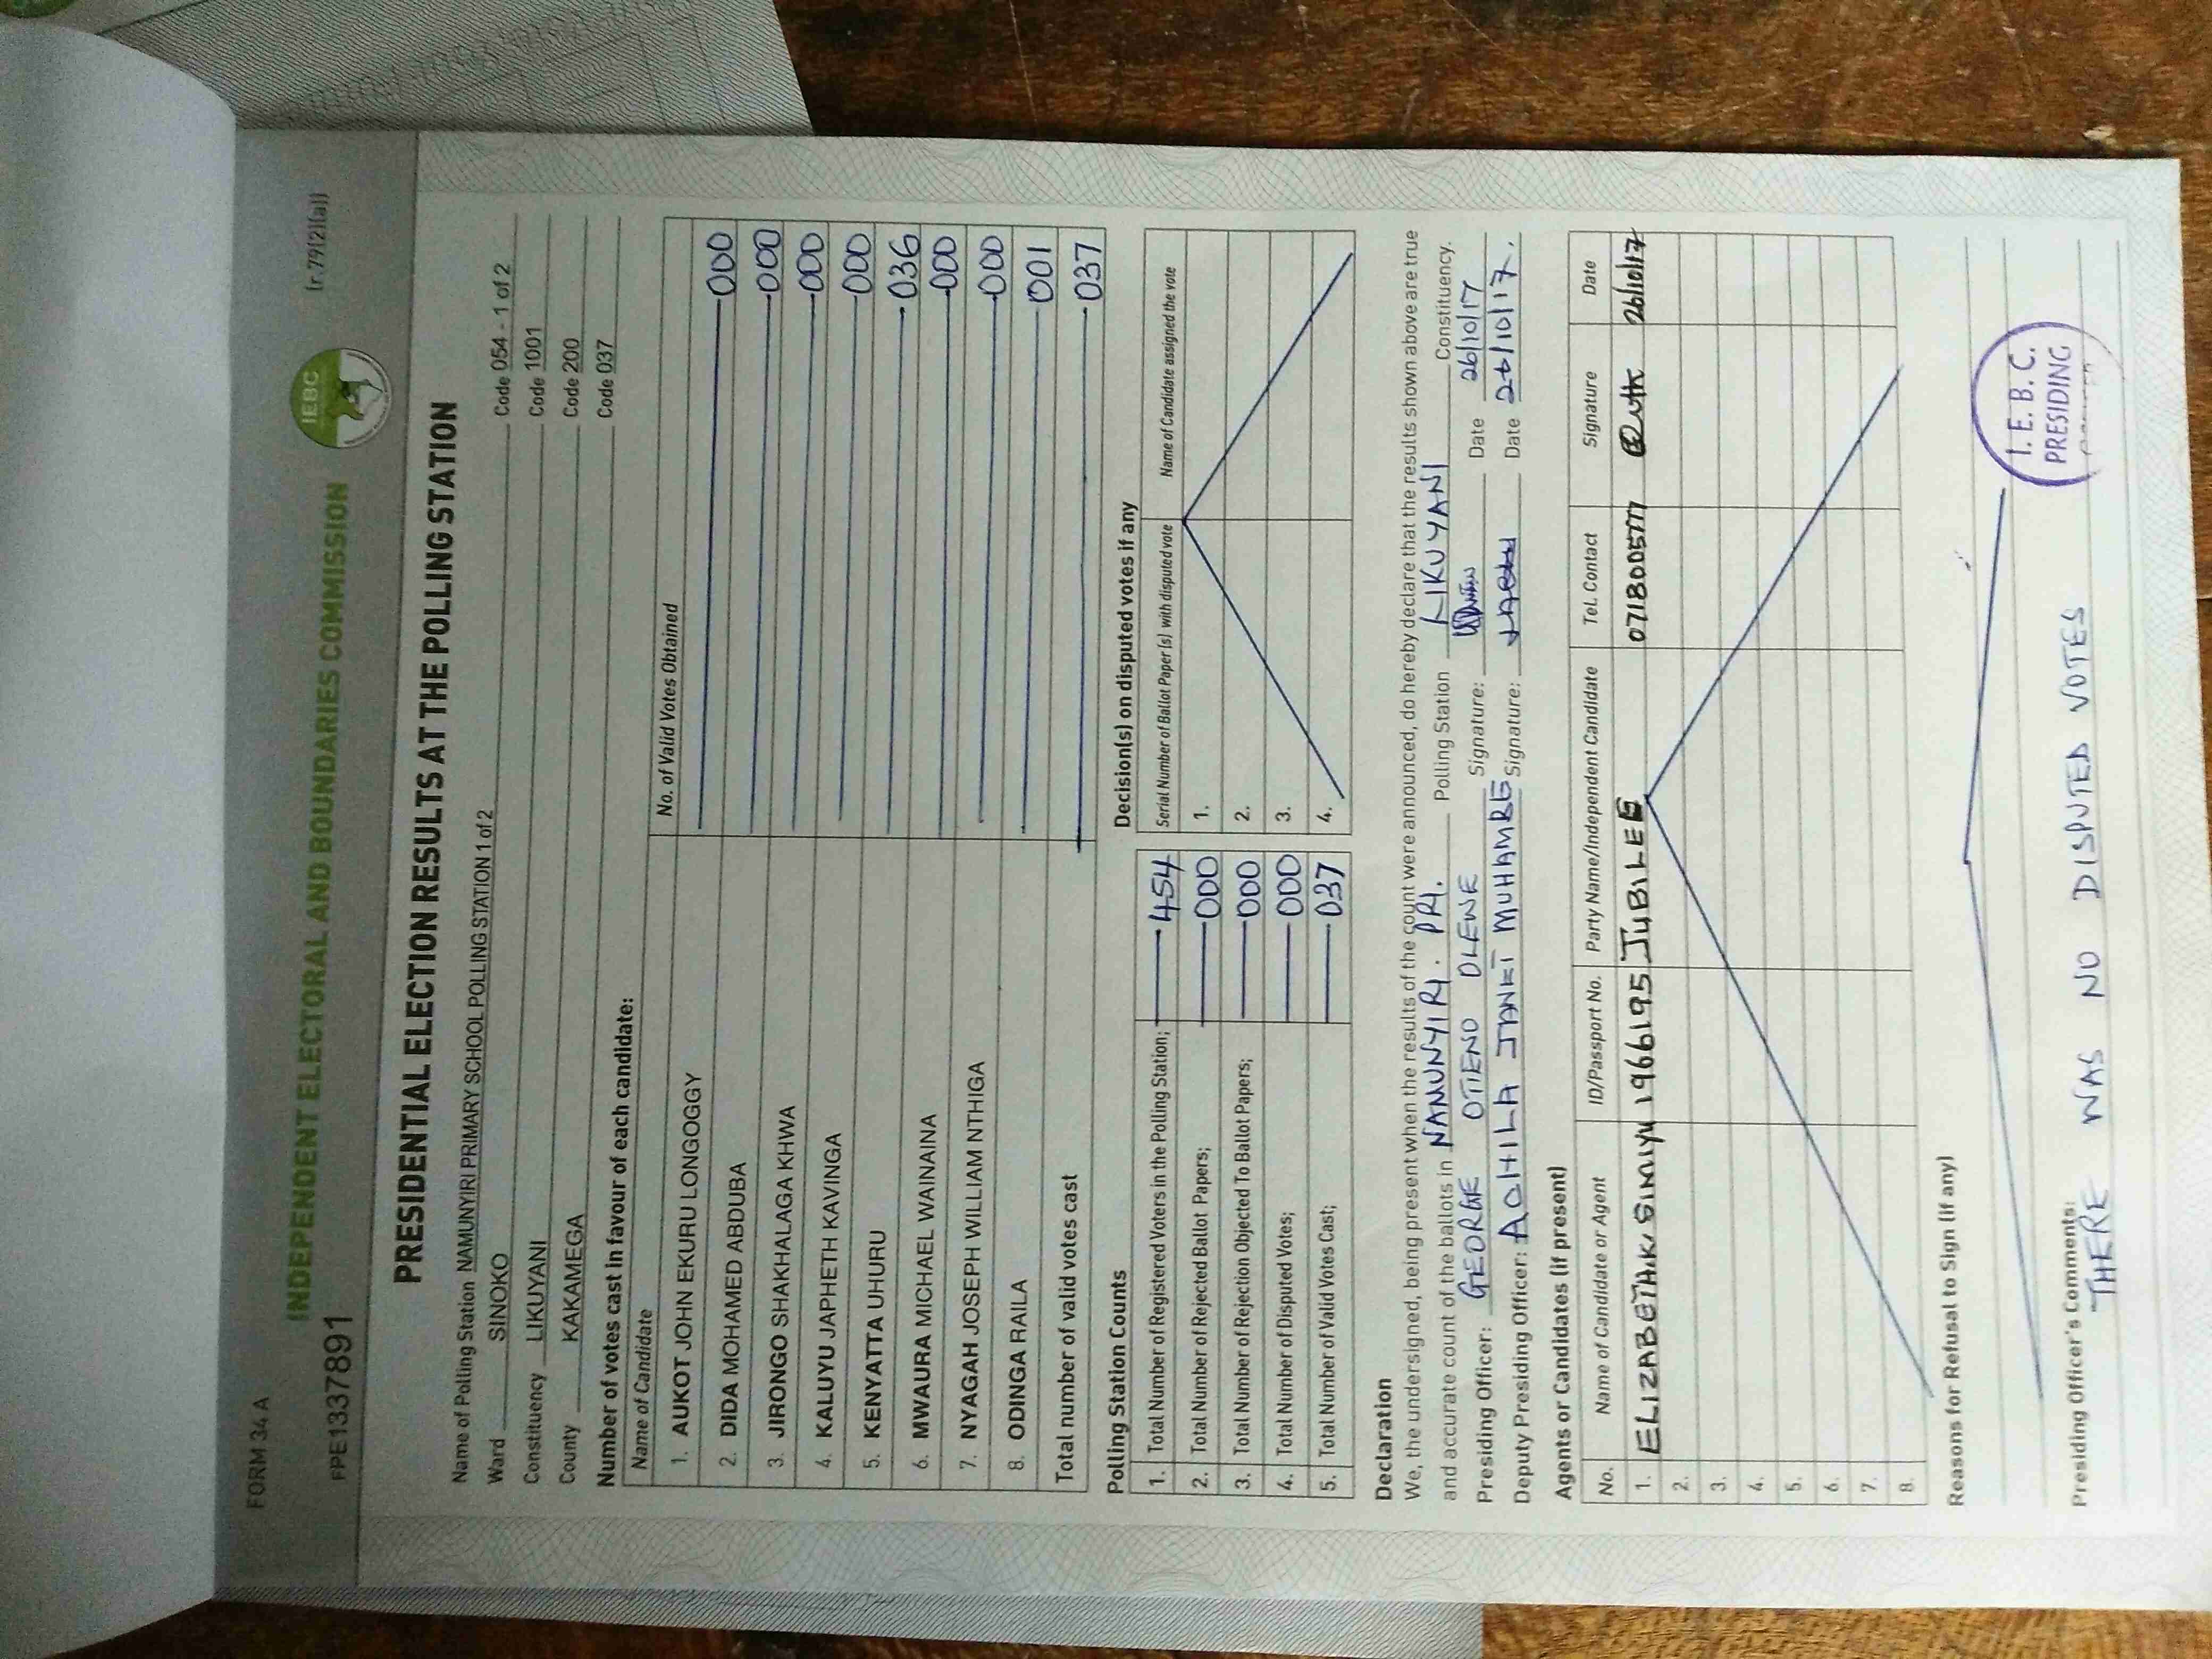 FORM 34 A
(r.79(2)(a))
IEBC
INDEPENDENT ELECTORAL AND BOUNDARIES COMMISSION
FPE1337891
PRESIDENTIAL ELECTION RESULTS AT THE POLLING STATION
Name of Polling Station NAMUNYIRI PRIMARY SCHOOL POLLING STATION 1 of 2 Code 054 - 1 of 2
Ward SINOKO Code 1001
Constituency LIKUYANI Code 200
County KAKAMEGA Code 037
Number of votes cast in favour of each candidate:
Name of Candidate No. of Valid Votes Obtained
1. AUKOT JOHN EKURU LONGOGGY 000
2. DIDA MOHAMED ABDUBA 000
3. JIRONGO SHAKHALAGA KHWA 000
4. KALUYU JAPHETH KAVINGA 000
5. KENYATTA UHURU 036
6. MWAURA MICHAEL WAINAINA 000
7. NYAGAH JOSEPH WILLIAM NTHIGA 000
8. ODINGA RAILA 001
Total number of valid votes cast 037
Polling Station Counts
1. Total Number of Registered Voters in the Polling Station; 454
2. Total Number of Rejected Ballot Papers; 000
3. Total Number of Rejection Objected To Ballot Papers; 000
4. Total Number of Disputed Votes; 000
5. Total Number of Valid Votes Cast; 037
Decision(s) on disputed votes if any
Serial Number of Ballot Paper (s) with disputed vote Name of Candidate assigned the vote
1.
2.
3.
4.
Declaration
We, the undersigned, being present when the results of the count were announced, do hereby declare that the results shown above are true
and accurate count of the ballots in NAMUNYIRI. PRI. Polling Station LIKUYANI Constituency.
Presiding Officer: GEORGE OTIENO OLEWE Signature: Date 26/10/17
Deputy Presiding Officer: MUHAMBE Signature: Date 26/10/17.
Agents or Candidates (if present)
No. Name of Candidate or Agent ID/Passport No. Party Name/Independent Candidate Tel. Contact Signature Date
1. ELIZABETH.K. SIMIYU 1966195 JUBILEE 0718005777 Ruth 26/10/17
2.
3.
4.
5.
6.
7.
8.
Reasons for Refusal to Sign (if any)
I. E. B. C.
PRESIDING
Presiding Officer's Comments:
THERE WAS NO DISPUTED VOTES